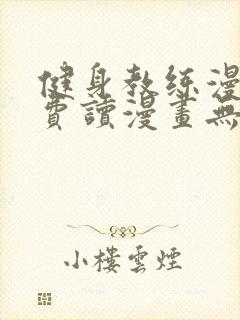 健身教练漫
費讀漫畫無
小樓雲煙